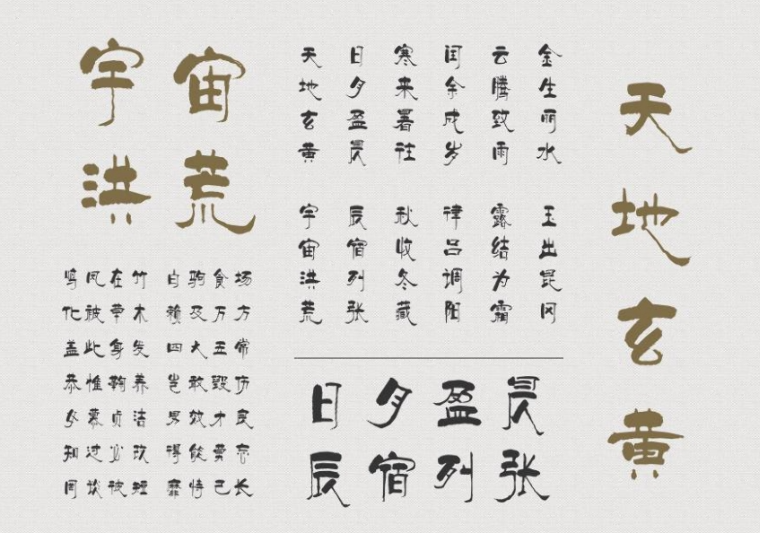 宇宙
洪荒
鸣凤在竹 白驹食场
化被草木 赖及万方
盖此身发 四大五常
恭惟鞠养 岂敢毁伤
女慕贞洁 男效才良
知过必改 得能莫忘
罔谈彼短 靡恃己长
天地玄黄
日月盈昃
寒来暑往
闰余成岁
云腾致雨
金生丽水
宇宙洪荒
辰宿列张
秋收冬藏
律吕调阳
露结为霜
玉出昆冈
日月盈昃
辰宿列张
天地玄黄